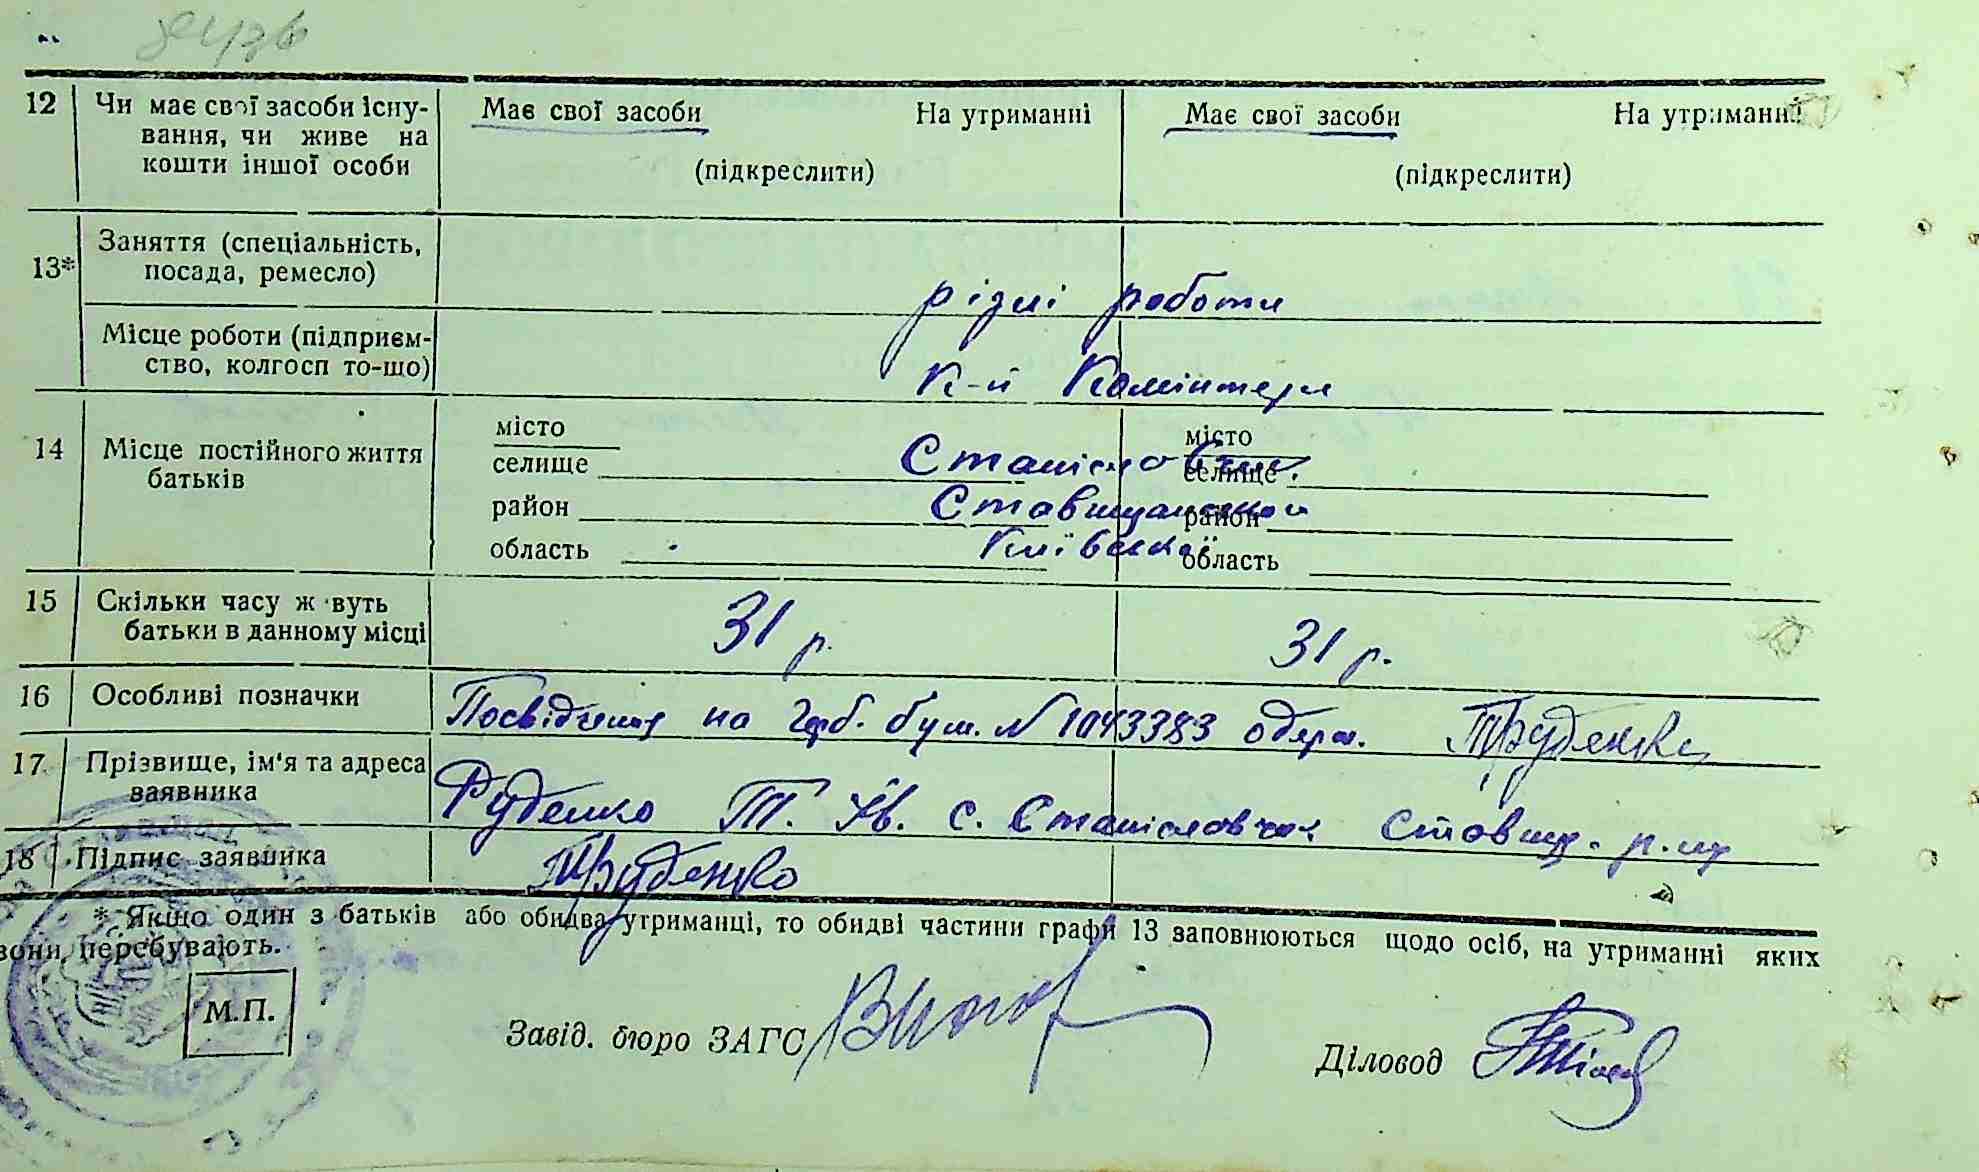 12 Чи має свої засоби існу- Має свої засоби На утриманні Має свої засоби На утриманні
вання, чи живе на
кошти іншої особи (підкреслити) (підкреслити)
13* Заняття (спеціальність,
посада, ремесло) різні роботи
Місце роботи (підприєм-
ство, колгосп то-що) К-п Комінтерн
14 Місце постійного життя
батьків
місто місто
селище Станісловчик селище
район Ставищанський район
область Київської область
15 Скільки часу живуть
батьки в данному місці 31 р. 31 р.
16 Особливі позначки Посвідчення на герб. бум. N 1043383 одерж. ТРуденко
17 Прізвище, ім'я та адреса
заявника Руденко Т. Ів. с. Станісловчик Ставищ. р-ну
18 Підпис заявника ТРуденко
* Якщо один з батьків або обидва утриманці, то обидві частини графи 13 заповнюються щодо осіб, на утриманні яких
вони перебувають.
М.П.
Завід. бюро ЗАГС
Діловод